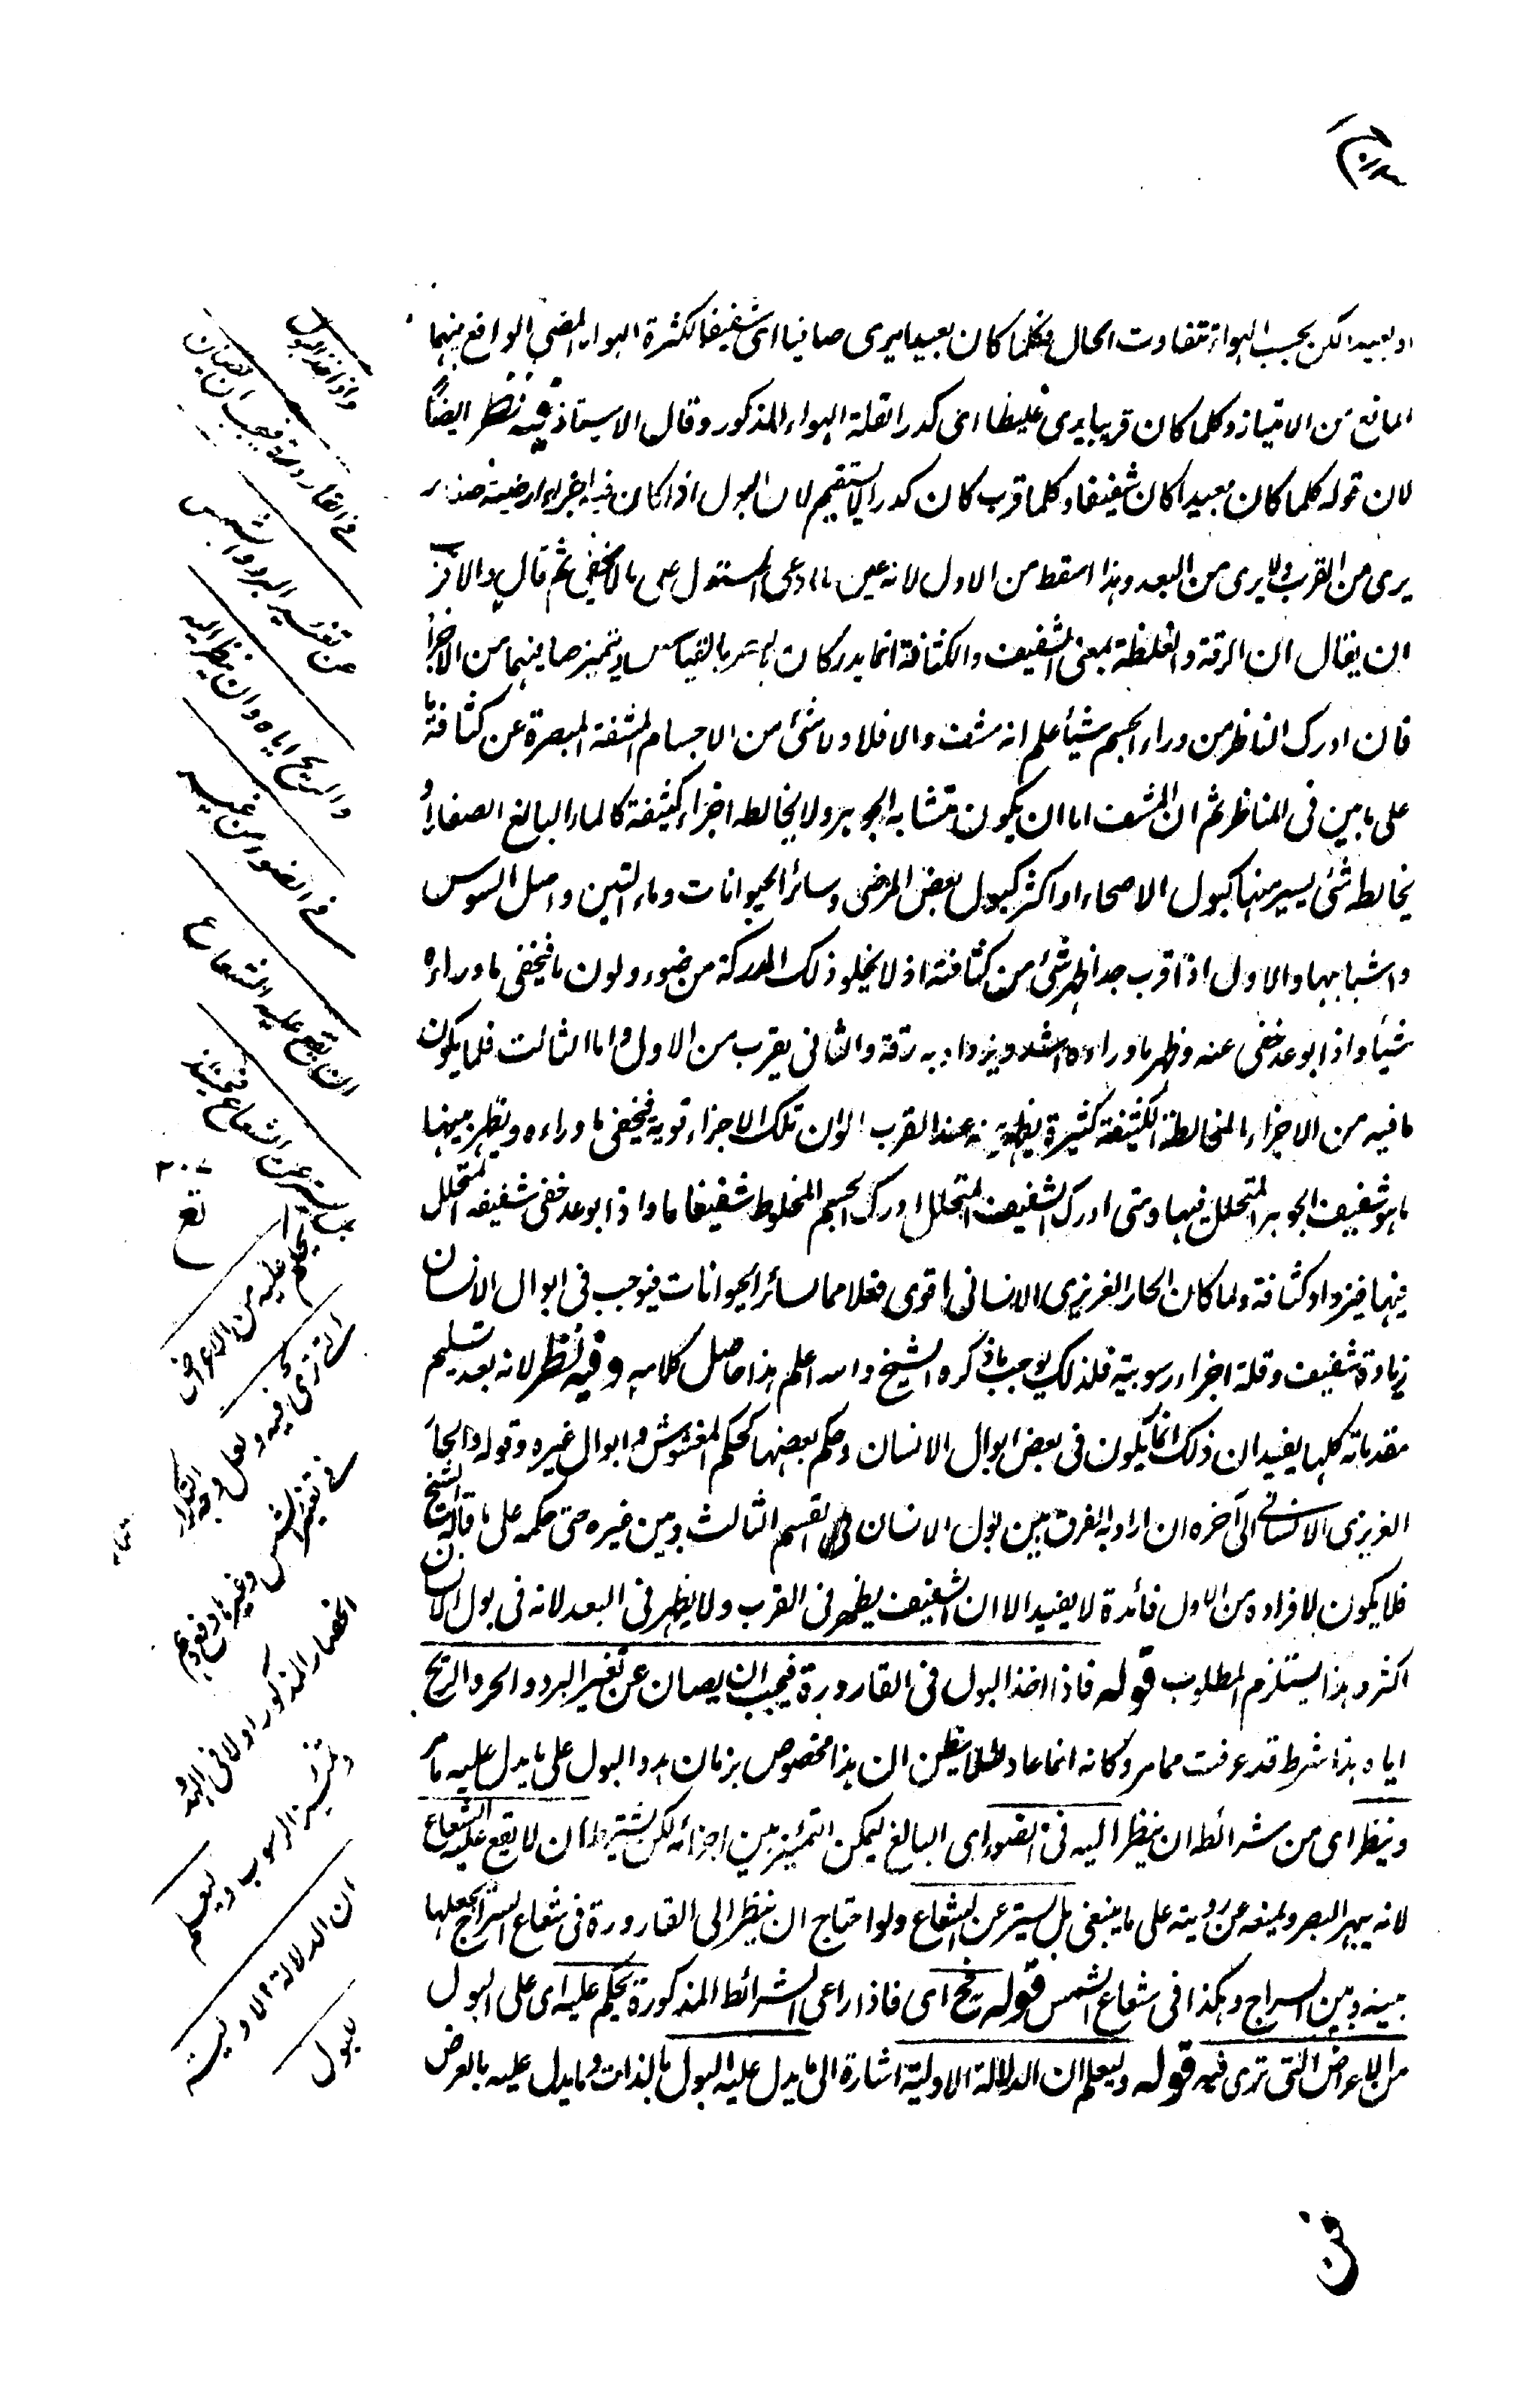 او بعيدا لكن بحسب الهواء تتفاوت الحال فكلما كان بعيدا يرى صافيا اى شفيفا لكثرة الهواء المضى الواقع بينهما
المانع من الامتياز وكلما كان قريبا يرى غليظا اى كدرا لقلة الهواء المذكور وقال الاستاذ فيه نظر ايضا
لان قوله كلما كان بعيدا كان شفيفا وكلما قرب كان كدرا لا يستقيم لان البول اذا كان فيه اجزاء ارضية
يرى من القرب ولا يرى من البعد وهذا اسقط من الاول لانه عين ما ادعى المستدل على ما لا يخفى ثم قال والاقرب
ان يقال ان الرقة والغلظة بمعنى الشفيف والكثافة انما يدركان بالبصر بالقياس من الاجزاء
فان ادرك الناظر من وراء الجسم شيأ علم انه مشف والا فلا ولا شئ من الاجسام المشفة المبصرة عن كثافة ما
على ما بين فى المناظر ثم ان المشف اما ان يكون متشابه الجوهر ولا يخالطه اجزاء كثيفة كالماء البالغ الصفاء او
يخالطه شئ يسير منها كبول الاصحاء او اكثر كبول بعض المرضى وسائر الحيوانات وماء التين واصل السوس
واشباهها والاول اذا قرب جدا ظهر شئ من كثافته اذ لا يخلو ذلك المدركة من ضوء ولون ما فيخفى ما وراءه
شيأ واذا بوعد خفى عنه وظهر ما وراءه اشد ويزداد به رقة والثانى يقرب من الاول واما الثالث فلما يكون
ما فيه من الاجزاء المخالطة الكثيفة كثيرة يظهر عند القرب الوان تلك الاجزاء قوية فيخفى ما وراءه ويظهر بينها
ما هو شفيف الجوهر المتخلل فيها ومتى ادرك الشفيف المتخلل ادرك الجسم المخلوط شفيفا ما واذا بوعد خفى شفيفه المتخلل
فيها فيزداد كثافة ولما كان الحار الغريزى الانسانى اقوى فعلا مما لسائر الحيوانات فيوجب فى ابوال الانسان
زيادة شفيف وقلة اجزاء رسوبية فلذلك يوجب ما ذكره الشيخ والله اعلم هذا حاصل كلامه وفيه نظر لانه بعد تسليم
مقدماته كلها يفيد ان ذلك انما يكون فى بعض ابوال الانسان وحكم بعضها كحكم المغشوش وابوال غيره وقوله والحار
الغريزى الانسانى الى آخره ان اراد به الفرق بين بول الانسان فى القسم الثالث وبين غيره حتى حكمه على ما قاله الشيخ
فلا يكون لافراده من الاول فائدة لا يفيد الا ان الشفيف يظهر فى القرب ولا يظهر فى البعد لانه فى بول الانسان
اكثر وهذا يستلزم المطلوب قوله فاذا اخذ البول فى القارورة فيجب ان يصان عن تغيير البرد والحر والريح
اياه هذا شرط قد عرفت مما مر وكانه انما عاد لئلا يظن ان هذا مخصوص بزمان البول على ما يدل عليه ما مر
وينظر اى من شرائطه ان ينظر اليه فى الضوء اى البالغ ليمكن التمييز بين اجزائه لكن يشترط ان لا يقع عليه الشعاع
لانه يبهر البصر ويمنعه عن رؤيته على ما ينبغى بل يستر عن الشعاع ولو احتاج ان ينظر الى القارورة فى شعاع السراج يجعلها
بينه وبين السراج وهكذا فى شعاع الشمس قوله فح اى فاذا راعى الشرائط المذكورة يحكم عليه اى على البول
من الاعراض التى ترى فيه قوله وليعلم ان الدلالة الاولية اشارة الى ما يدل عليه البول بالذات وما يدل عليه بالعرض
فى
واذا اخذ البول
فى القارورة فيجب ان يصان
عن تغيير البرد والشمس
والريح اياه وان ينظر اليه
فى الضوء من غير
ان يقع عليه الشعاع
بل يستر عن الشعاع فحينئذ
يحكم عليه من الاعراض
التى ترى فيه
وليعلم
ان الدلالة الاولية
للبول
٣٠٧